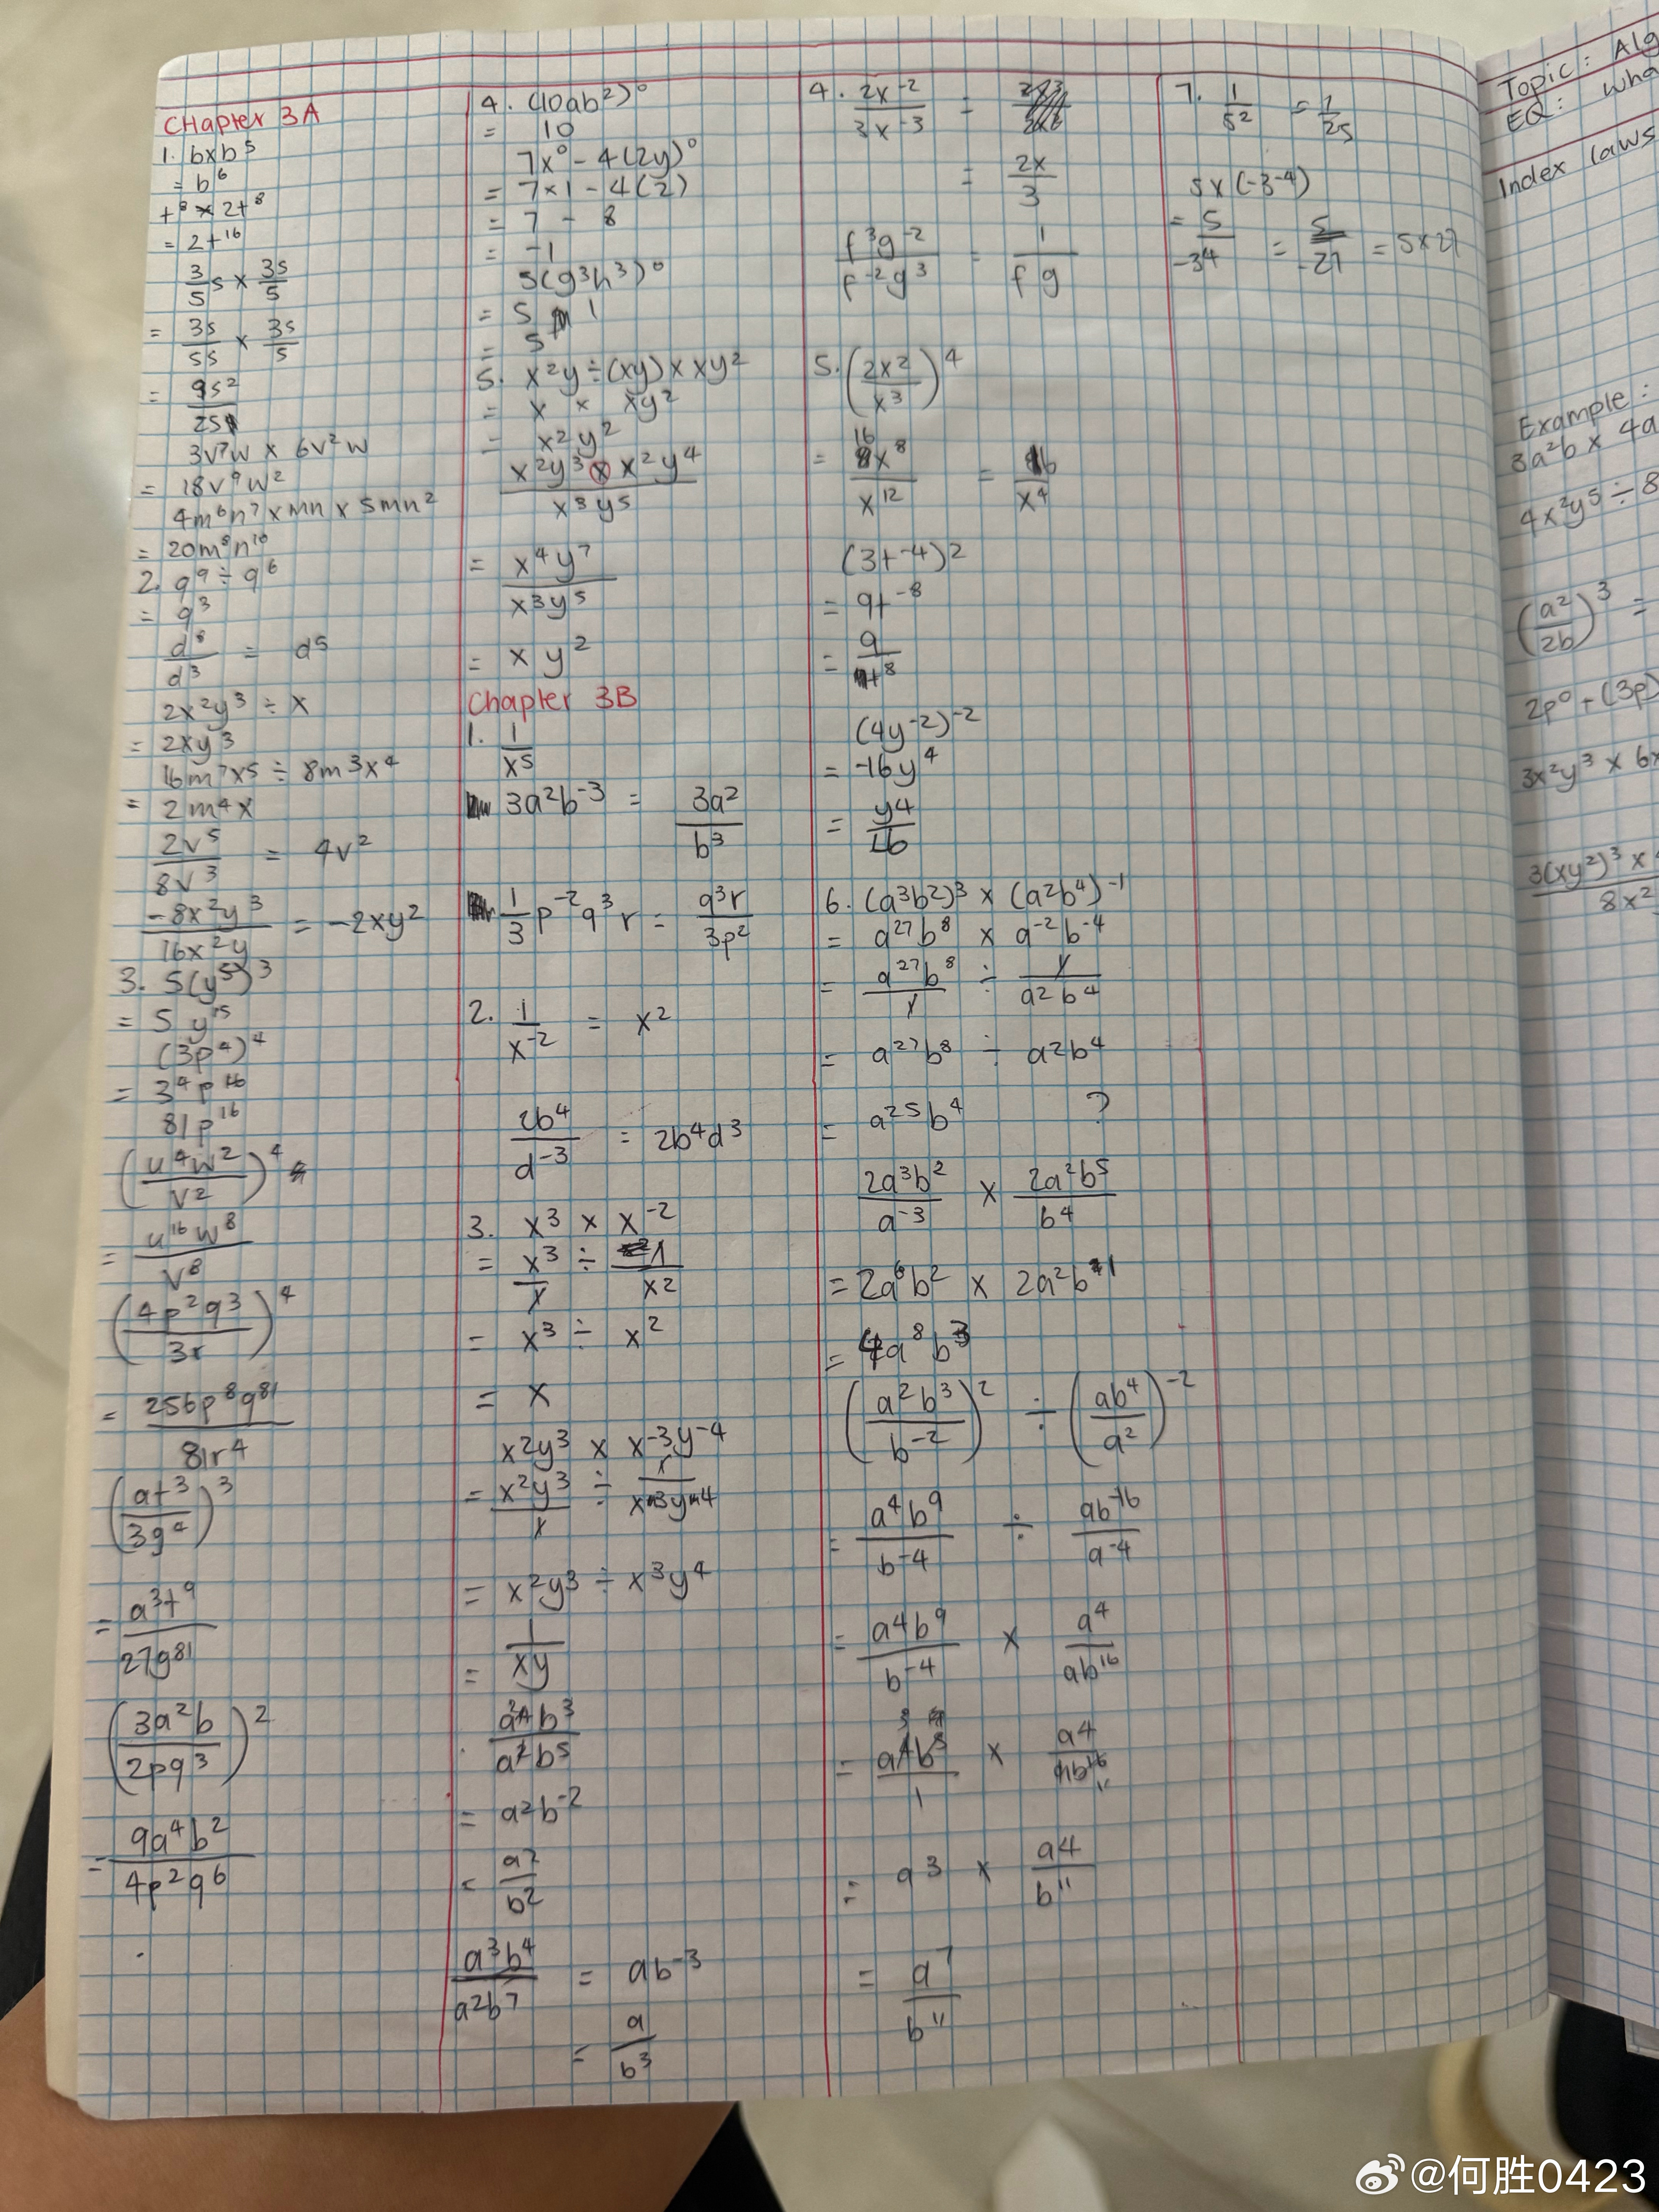 Chapter 3A
1. b×b⁵
= b⁶
t⁸ × 2t⁸
= 2t¹⁶
3/5 s × 3s/5
= 3s/5s × 3s/5
= 9s²/25
3v⁷w × 6v²w
= 18v⁹w²
4m⁶n⁷ × mn × 5mn²
= 20m⁸n¹⁰
2. q⁹ ÷ q⁶
= q³
d⁸/d³ = d⁵
2x²y³ ÷ x
= 2xy³
16m⁷x⁵ ÷ 8m³x⁴
= 2m⁴x
2v⁵/8v³ = 4v²
-8x²y³/16x²y = -2xy²
3. 5(y⁵)³
= 5y¹⁵
(3p⁴)⁴
= 3⁴p¹⁶
81p¹⁶
(u⁴w²/v²)⁴
= u¹⁶w⁸/v⁸
(4p²q³/3r)⁴
= 256p⁸q⁸¹/81r⁴
(at³/3g⁴)³
= a³t⁹/27g⁸¹
(3a²b/2pq³)²
= 9a⁴b²/4p²q⁶
4. (10ab²)⁰
= 10
7x⁰ - 4(2y)⁰
= 7×1 - 4(2)
= 7 - 8
= -1
5(g³h³)⁰
= 5 1
= 5
5. x²y ÷ (xy) × xy²
= x × xy²
= x²y²
x²y³ × x²y⁴/x³y⁵
= x⁴y⁷/x³y⁵
= xy²
Chapter 3B
1. 1/x⁵
3a²b⁻³ = 3a²/b³
1/3 p⁻²q³r = q³r/3p²
2. 1/x⁻² = x²
2b⁴/d⁻³ = 2b⁴d³
3. x³ × x⁻²
= x³/1 ÷ 1/x²
= x³ ÷ x²
= x
x²y³ × x⁻³y⁻⁴
= x²y³/1 ÷ 1/x³y⁴
= x²y³ ÷ x³y⁴
= 1/xy
a⁴b³/a²b⁵
= a²b⁻²
= a²/b²
a³b⁴/a²b⁷ = ab⁻³
= a/b³
4. 2x⁻²/3x⁻³ =
= 2x/3
f³g⁻²/f⁻²g³ = 1/fg
5. (2x²/x³)⁴
= 16x⁸/x¹² = 16/x⁴
(3t⁻⁴)²
= 9t⁻⁸
= 9/t⁸
(4y⁻²)⁻²
= -16y⁴
= y⁴/16
6. (a³b²)³ × (a²b⁴)⁻¹
= a²⁷b⁸ × a⁻²b⁻⁴
= a²⁷b⁸/1 ÷ 1/a²b⁴
= a²⁷b⁸ ÷ a²b⁴
= a²⁵b⁴ ?
2a³b²/a⁻³ × 2a²b⁵/b⁴
= 2a⁶b² × 2a²b¹
= 4a⁸b³
(a²b³/b⁻²)² ÷ (ab⁴/a²)⁻²
= a⁴b⁹/b⁻⁴ ÷ ab⁻¹⁶/a⁻⁴
= a⁴b⁹/b⁻⁴ × a⁴/ab¹⁶
= a³b⁵/1 × a⁴/b¹¹
= a³ × a⁴/b¹¹
= a⁷/b¹¹
7. 1/5² = 1/25
5×(-3⁻⁴)
= 5/-3⁴ = 5/-27 = 5×27
Topic: Alg
EQ: Wha
Index laws
Example:
3a²b × 4a
4x²y⁵ ÷ 8
(a²/2b)³ =
2p⁰ + (3p)
3x²y³ × 6x
3(xy²)³ ×
8x²
@何胜0423